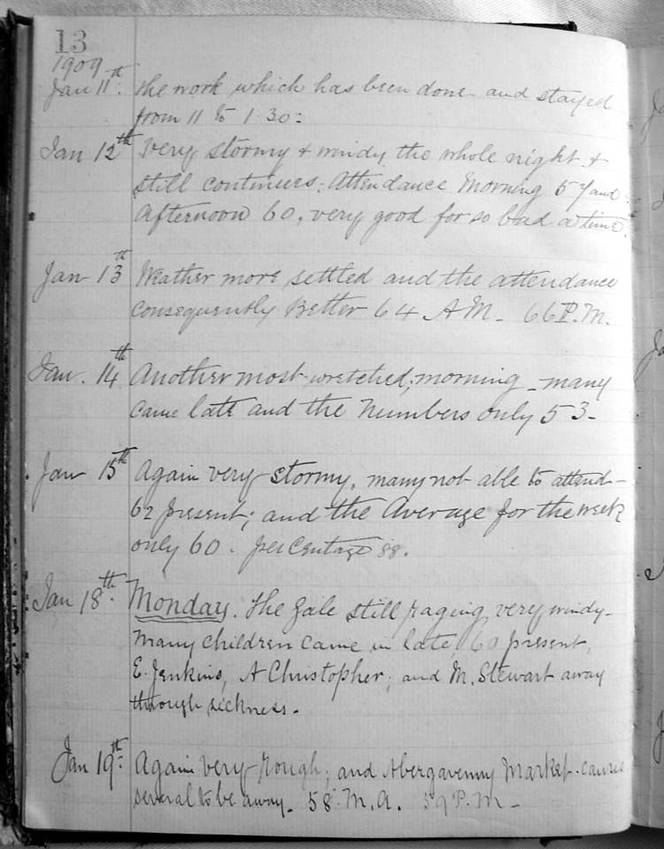 13
1909
Jan 11th. the work which has been done and stayed
from 11 to 1 30:
Jan 12th Very stormy & windy the whole night &
still continues; Attendance Morning 57 and
Afternoon 60, very good for so bad a time.
Jan 13th Weather more settled and the attendance
consequently Better 64 A.M. 66 P.M.
Jan. 14th Another most wretched, morning - many
came late and the numbers only 53-
Jan 15th Again very stormy, many not able to attend -
62 present; and the Average for the week
only 60. percentage 88.
Jan 18th. Monday. The Gale still raging, very windy-
many children came in late, 60 present,
E. Jenkins, A Christopher, and M. Stewart away
through sickness.
Jan 19th: Again very rough; and Abergavenny Market causes
several to be away. 58 M.A. 59 P.M -